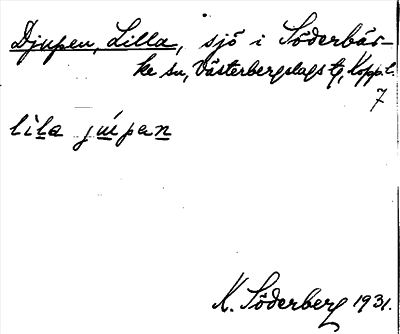 Djupen, Lilla, sjö i Söderbär-
ke sn, Västerbergslags tg, Kopp.l.
7
lìla júpan
K. Söderberg 1931.